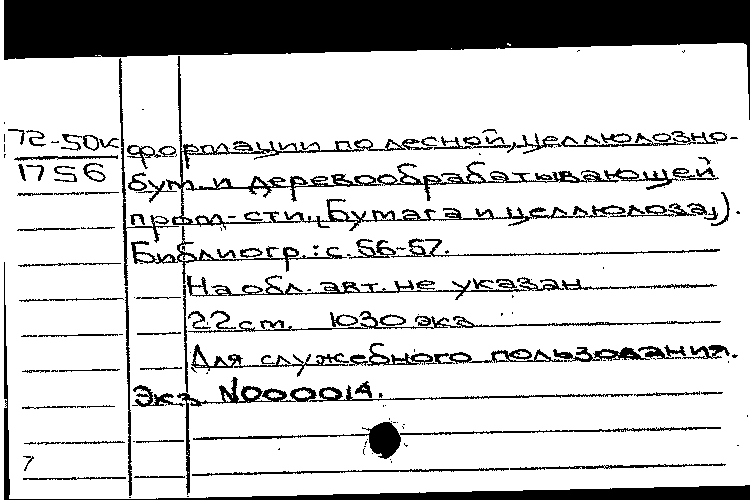 72-50к
1756
формации по лесной, целлюлозно-
бум. и деревообрабатывающей
пром-сти, „Бумага и целлюлоза„).
Библиогр.: с. 56-57.
На обл. авт. не указан
22 ст. 1030 экз
Для служебного пользования.
Экз N000014.
7